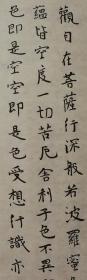 觀自在菩薩行深般若波羅蜜
蘊皆空度一切苦厄舍利子色不異
色即是空空即是色受想行識亦